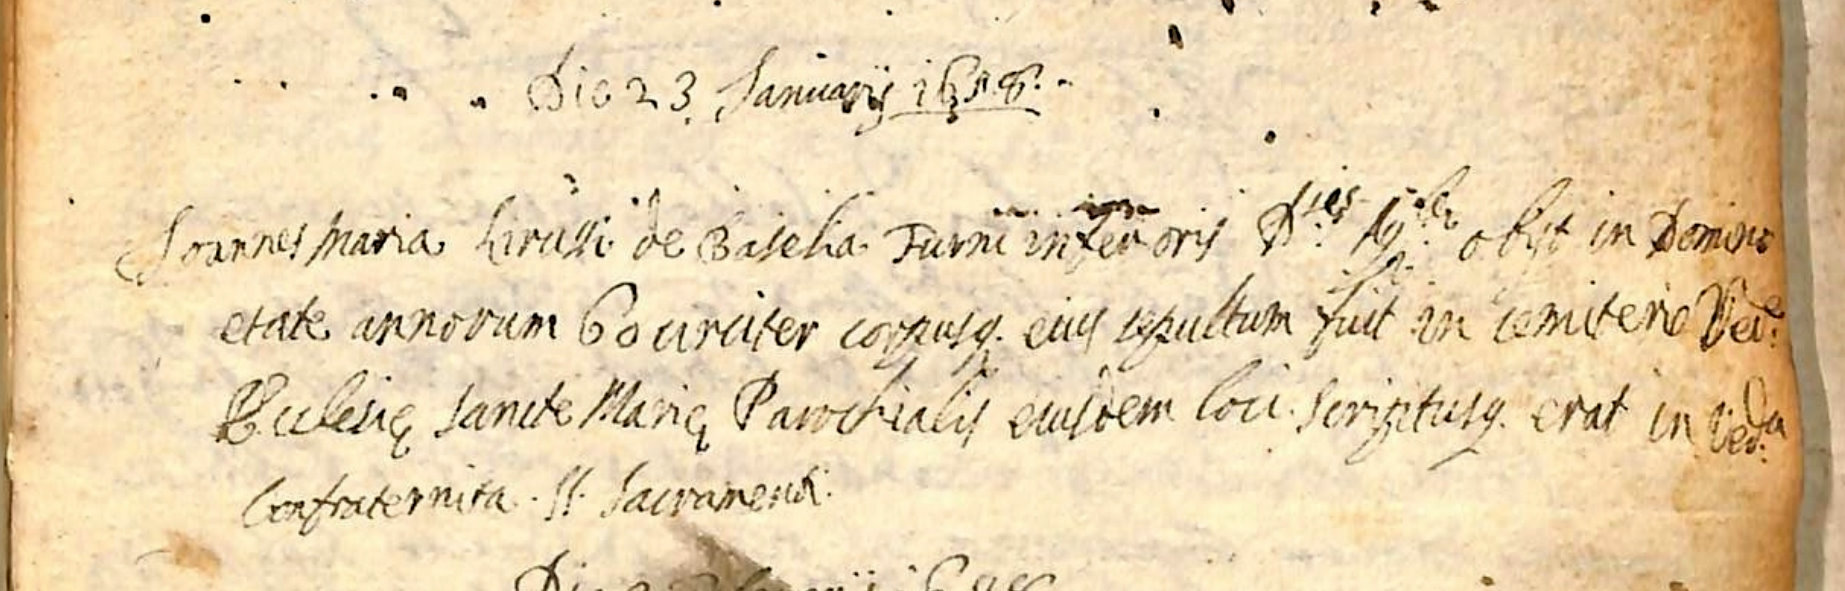 Die 23 Januarij 1658.
Joannes Maria Cirussi de Baselia Furni inferioris obijt in Domino
etate annorum 60 circiter corpusq. eius sepultum fuit in cemiterio Ved.e
Ecclesię Sancte Marię Parochialis eiusdem loci. Scriptusq. erat in Ved.da
Confraternita. SS. Sacramenti.